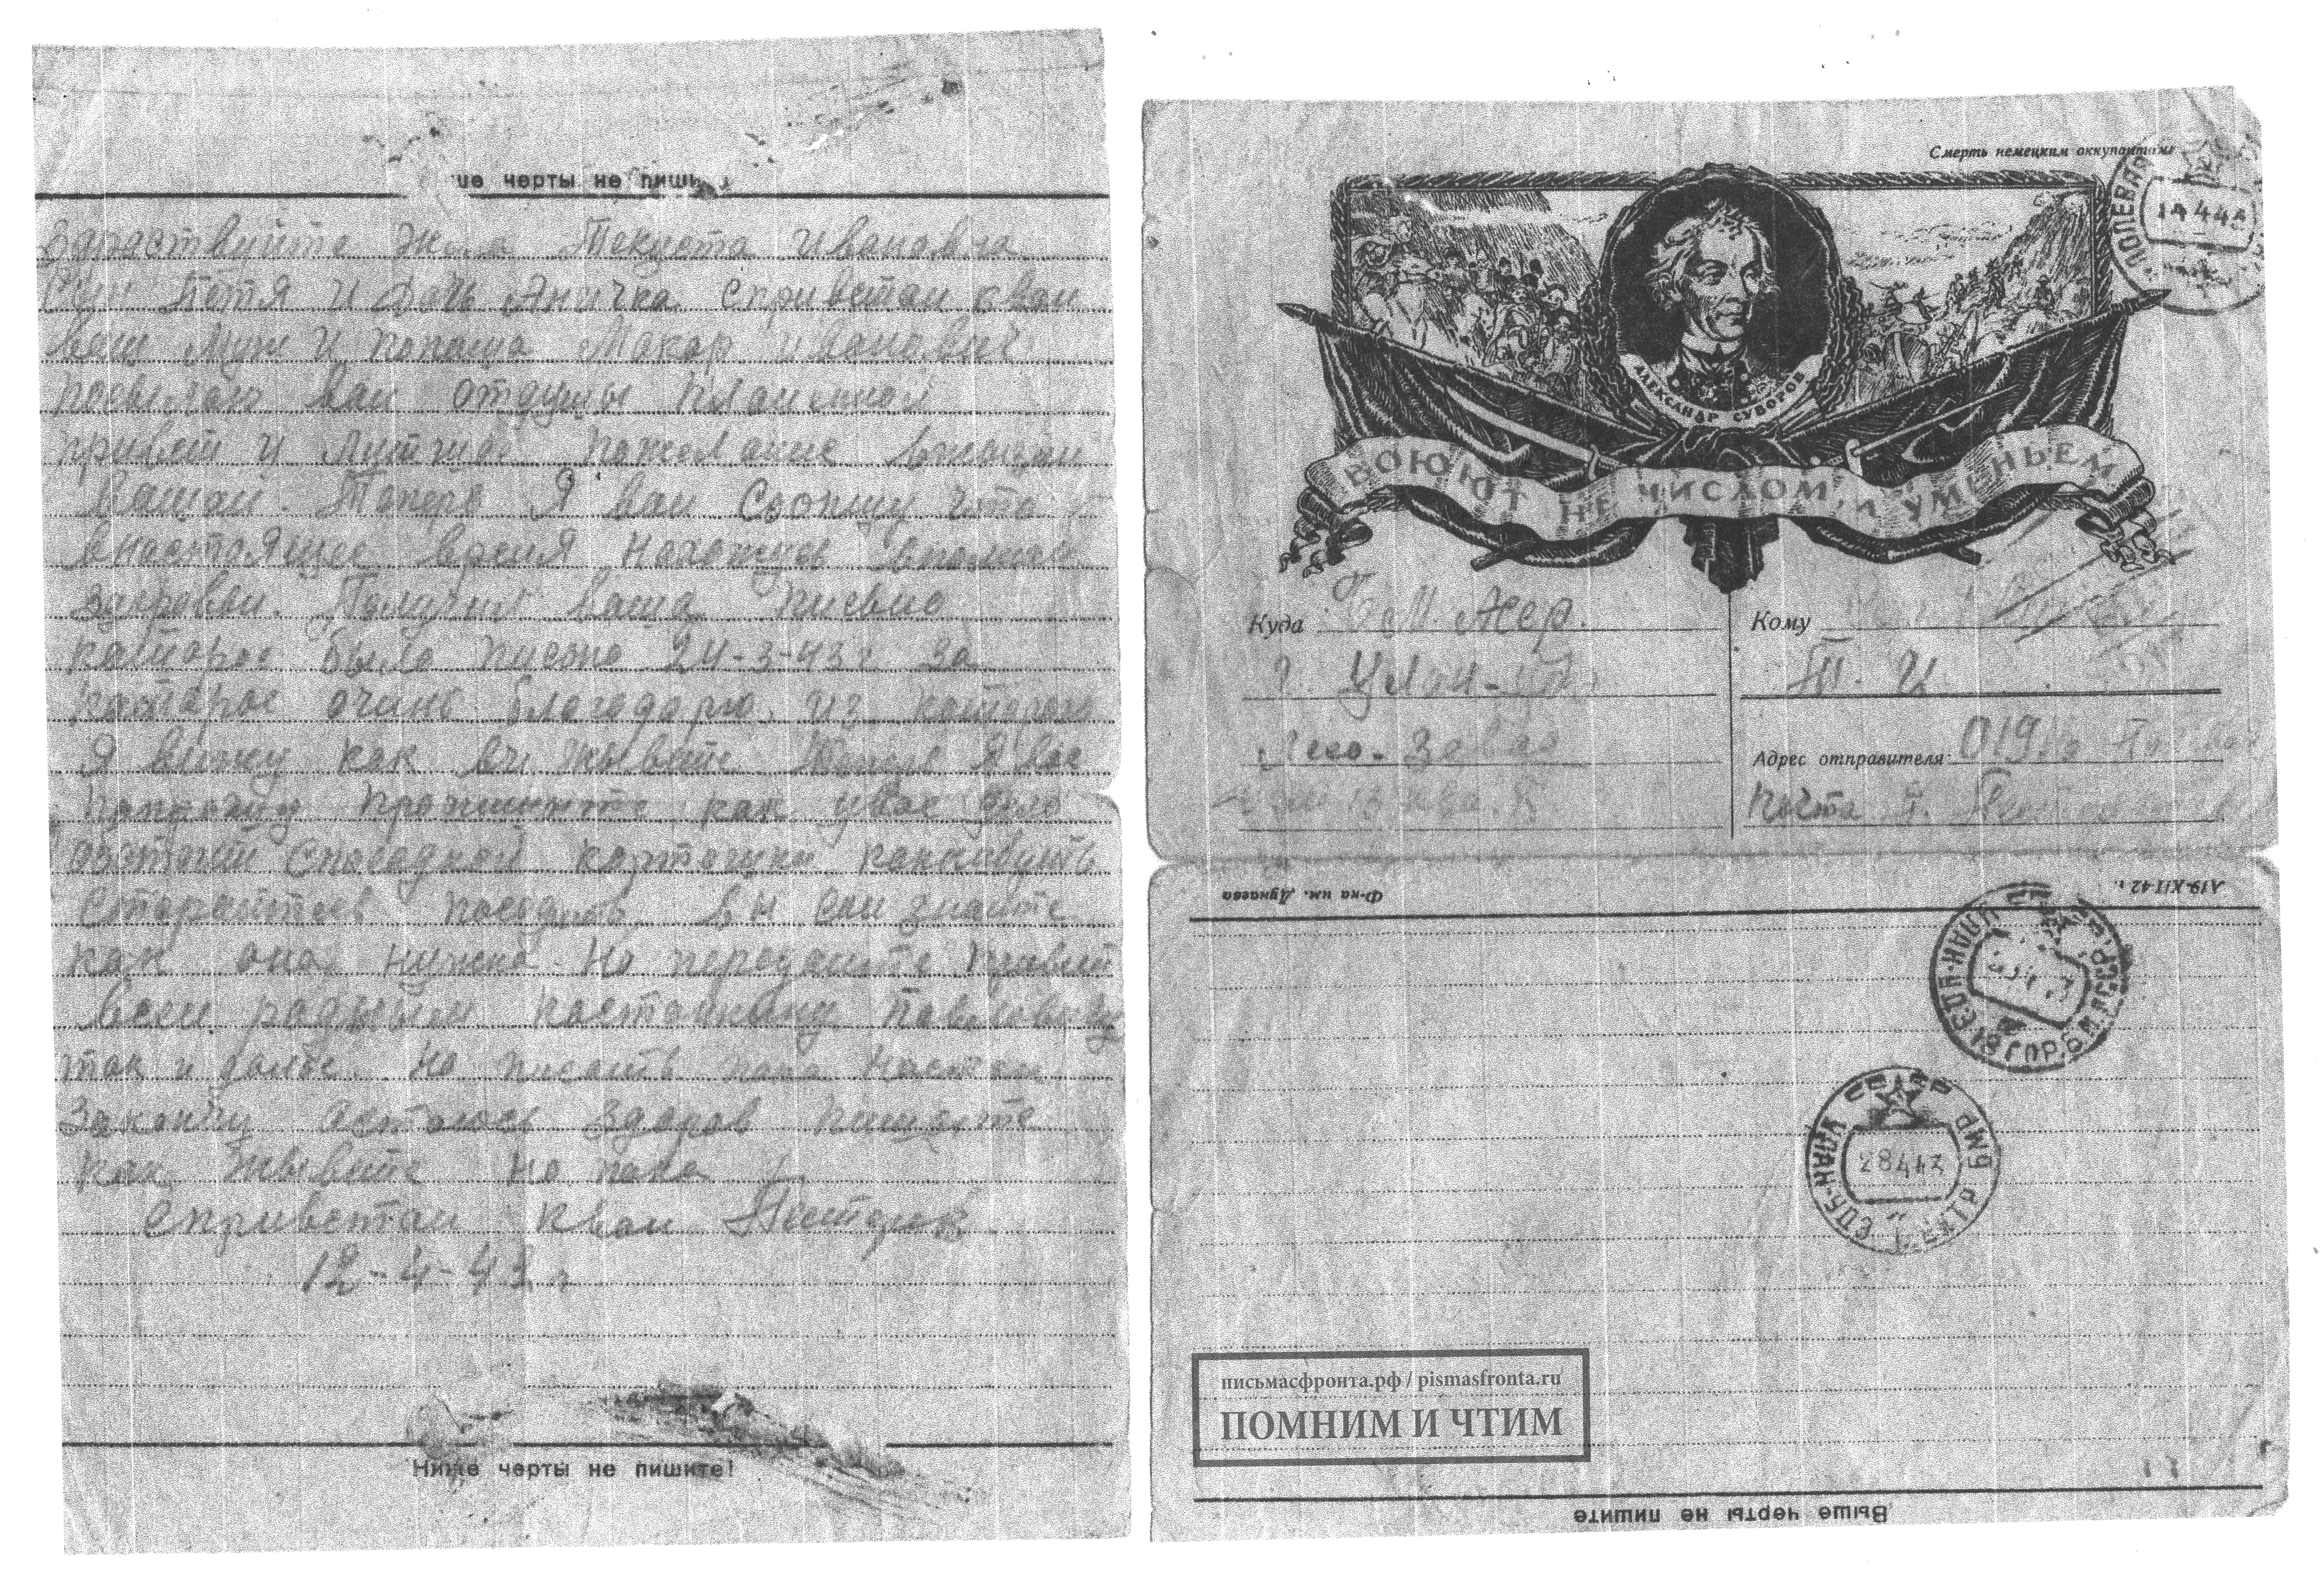 ше черты не пишь
Здраствуйте Жена Текуста Ивановна
Сын Петя и дочь Аничка сприветам квам
ваш муж и папаша Макар Иванович
посылаю вам отдушы пламеной
привет и лутчие пожелание вжызни
вашай. Теперь Я вам Сообщу что
внастоящее время нахожусь вполне
здоровым. Получил ваша письмо
каторое было писано 24-3-43 г. За
каторое очинь благодарю, из которого
Я вижу как вы жывете Теперь Я вас
попрошу пропишите как увас дело
обстоит спосадкой картошки
Старайтесь посадить вы сами знаете
как она нужна. Но передайте привет
всем родным
так и далее. Но писать пока
Закончу астаюсь здоров пишите
как жывете но пока
сприветам квам Пестерев
12-4-43 г
Ниже черты не пишите!
Смерть немецким оккупантам!
ПОЛЕВАЯ
АЛЕКСАНДР СУВОРОВ
ВОЮЮТ НЕ ЧИСЛОМ, И УМЕНЬЕМ
Куда Б.М. Асср.
г. Улан-Удэ
Кому
П. И.
Адрес отправителя: 019
почта
Ф-ка им. Дунаева
А19-XII-42 г.
УЛАН-УДЭ
УЛАН-УДЭ БМР
28443
письмасфронта.рф / pismasfronta.ru
ПОМНИМ И ЧТИМ
Выше черты не пишите